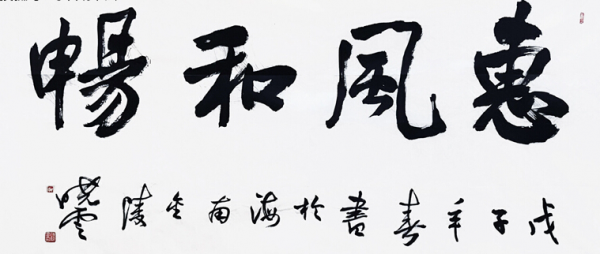 惠風和暢
戊子年春書於海南金陵
曉雲